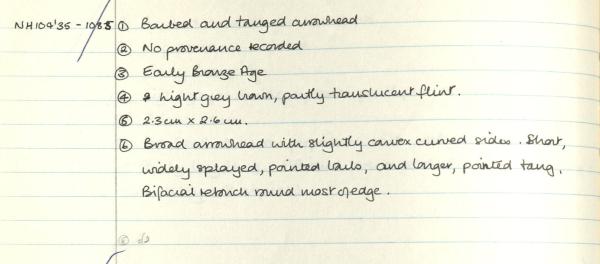 NH104'35 - 1035 ① Barbed and tanged arrowhead
② No provenance recorded
③ Early Bronze Age
④ Light grey brown, partly translucent flint.
⑤ 2.3cm × 2.6cm.
⑥ Broad arrowhead with slightly convex curved sides. Short,
widely splayed, pointed barbs, and longer, pointed tang.
Bifacial retouch round most of edge.